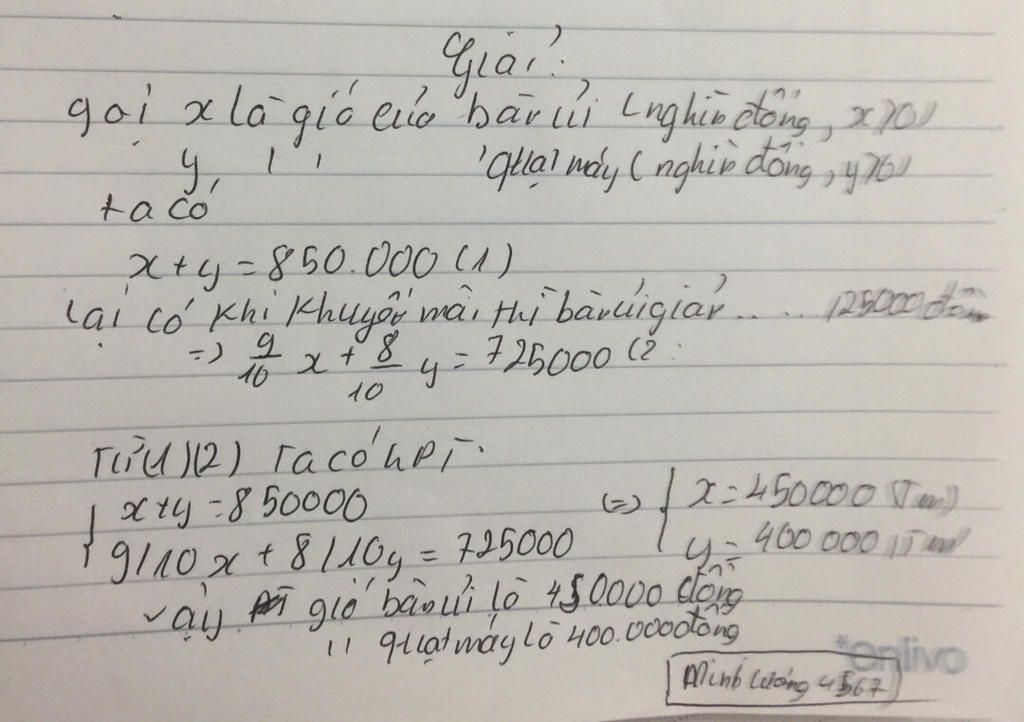 Giải:
gọi x là giá của bàn ủi (nghìn đồng, x>0)
y, ' ' ' quạt máy (nghìn đồng, y>0)
ta có
x+y = 850.000 (1)
lại có khi khuyến mãi thì bàn ủi giảm ..... 125000
=> 9/10 x + 8/10 y = 725000 (2
Từ (1)(2) Ta có hpT.
{ x+y = 850000 (=) { x = 450000
9/10x + 8/10y = 725000 y = 400 000
vậy giá bàn ủi là 450000 đồng
'' quạt máy là 400.000 đồng
*onlivo
Minh Lương 4567